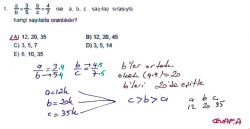 1. a/b = 3/5, b/c = 4/7 ise a, b, c sayıları sırasıyla
hangi sayılarla orantılıdır?
A) 12, 20, 35 B) 12, 20, 45
C) 3, 5, 7 D) 3, 5, 14
E) 6, 10, 35
a/b = 3.4/5.4 b/c = 4.5/7.5
b'ler ortak
olacak (4.5) = 20
b'leri 20'de eşitle
a=12k
b=20k
c=35k
c>b>a
a b c
12 20 35
CEVAP:A